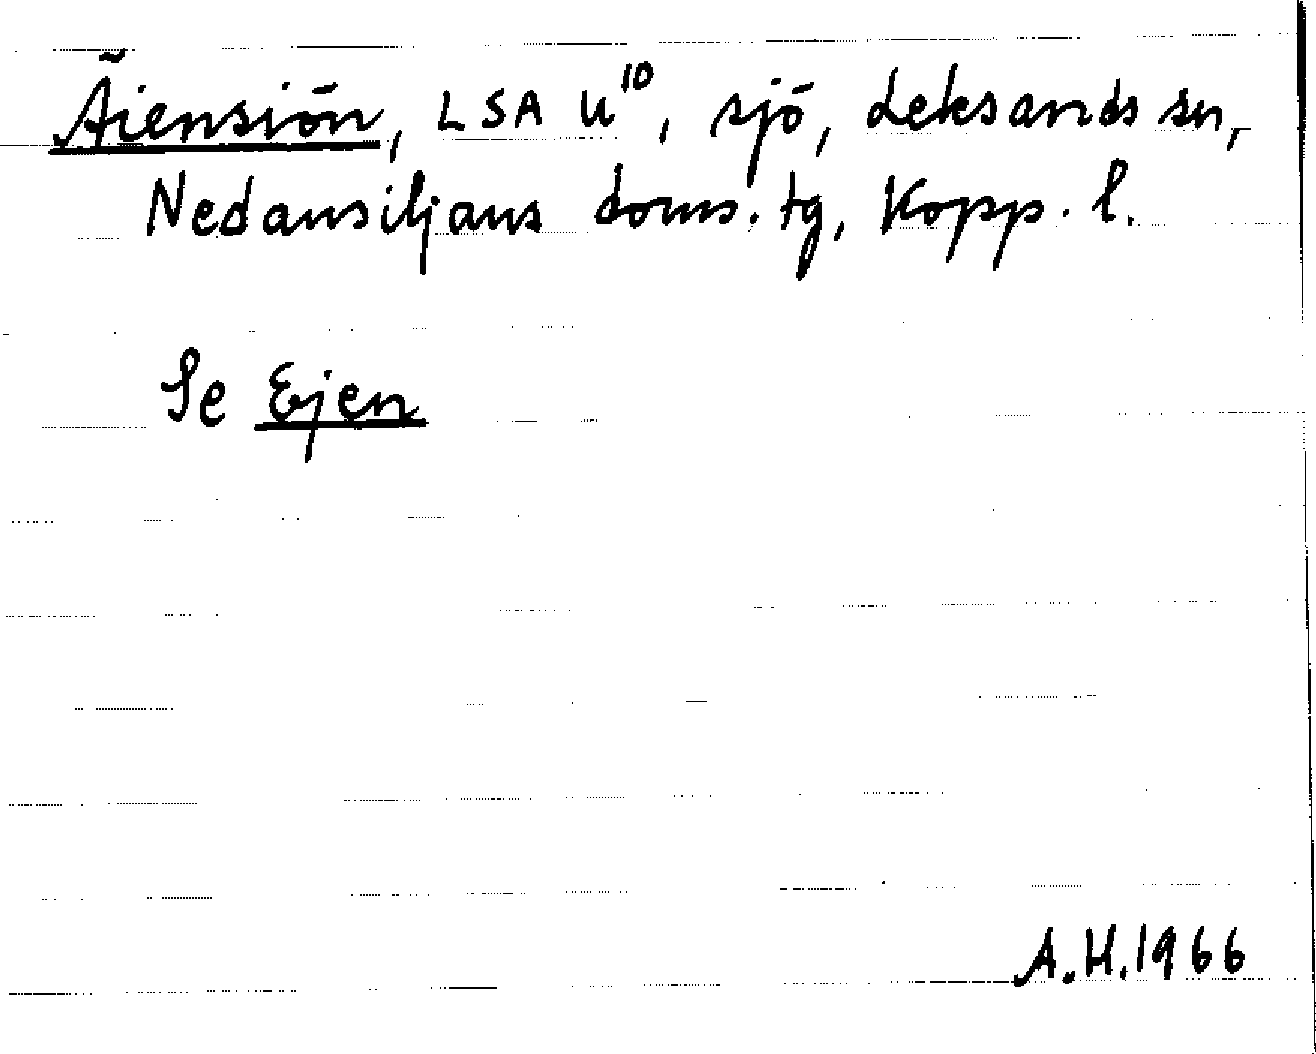 Äiensiön, LSA U¹⁰, sjö, Leksands sn,
Nedansiljans doms. tg, Kopp. l.
Se Ejen
A.H. 1966